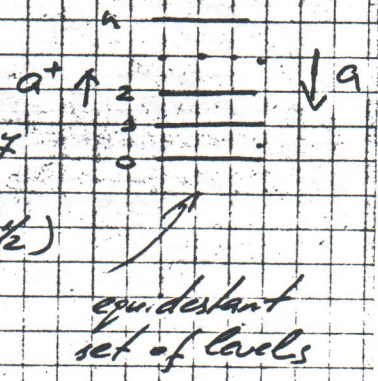 n
a⁺ ↑ 2 ↓ a
1
0
1/2)
equidestant
set of levels